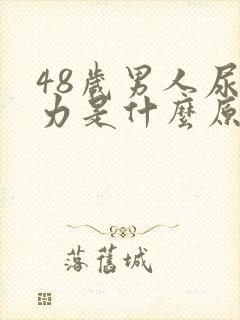 48歲男人尿
力是什麼原
落舊城